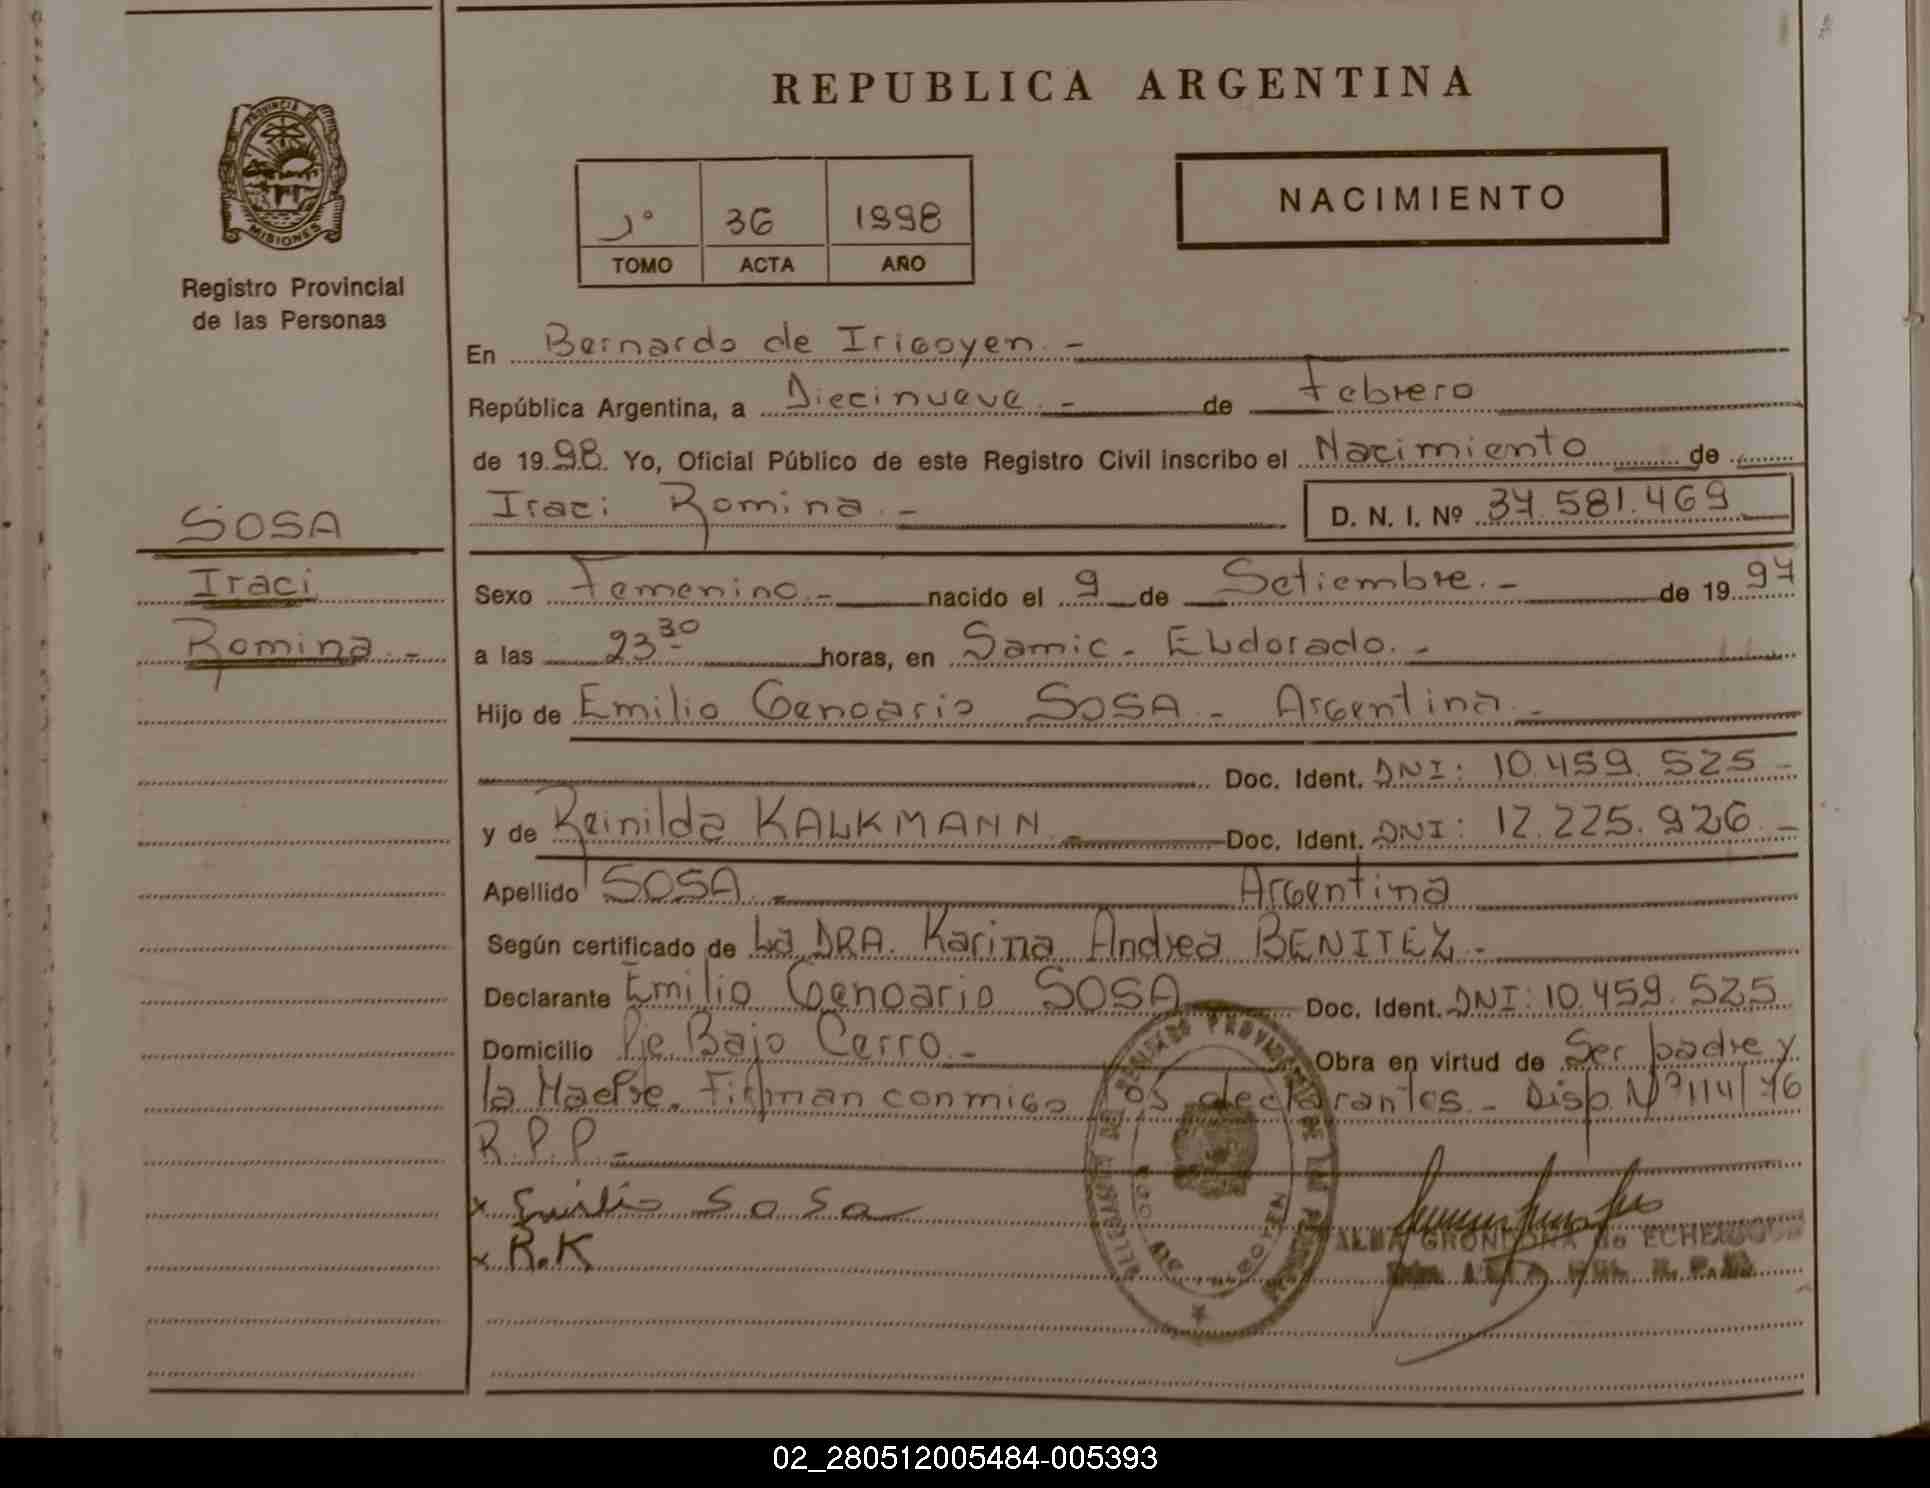 REPUBLICA ARGENTINA
PROVINCIA DE
MISIONES
Registro Provincial
de las Personas
1º 36 1998
TOMO ACTA AÑO
NACIMIENTO
En Bernardo de Irigoyen.-
República Argentina, a Diecinueve.- de Febrero
de 1998. Yo, Oficial Público de este Registro Civil inscribo el Nacimiento de
Iraci Romina.- D. N. I. Nº 37.581.469
SOSA
Iraci
Romina.-
Sexo Femenino.- nacido el 9 de Setiembre.- de 1997
a las 23 30 horas, en Samic - ELdorado.-
Hijo de Emilio Genoario SOSA - Argentina.-
Doc. Ident. DNI: 10.459.525 -
y de Reinilda KALKMANN.- Doc. Ident. DNI: 12.225.926.-
Apellido SOSA.- Argentina
Según certificado de La DRA. Karina Andrea BENITEZ.-
Declarante Emilio Genoario SOSA Doc. Ident. DNI: 10.459.525
Domicilio Pje Bajo Cerro.- Obra en virtud de Ser padre y
la Madre. Firman conmigo los declarantes - Disp. Nº 114/76
R.P.P.-
x Emilio Sosa
x R.K
ALBA GRONDONA de
02_280512005484-005393